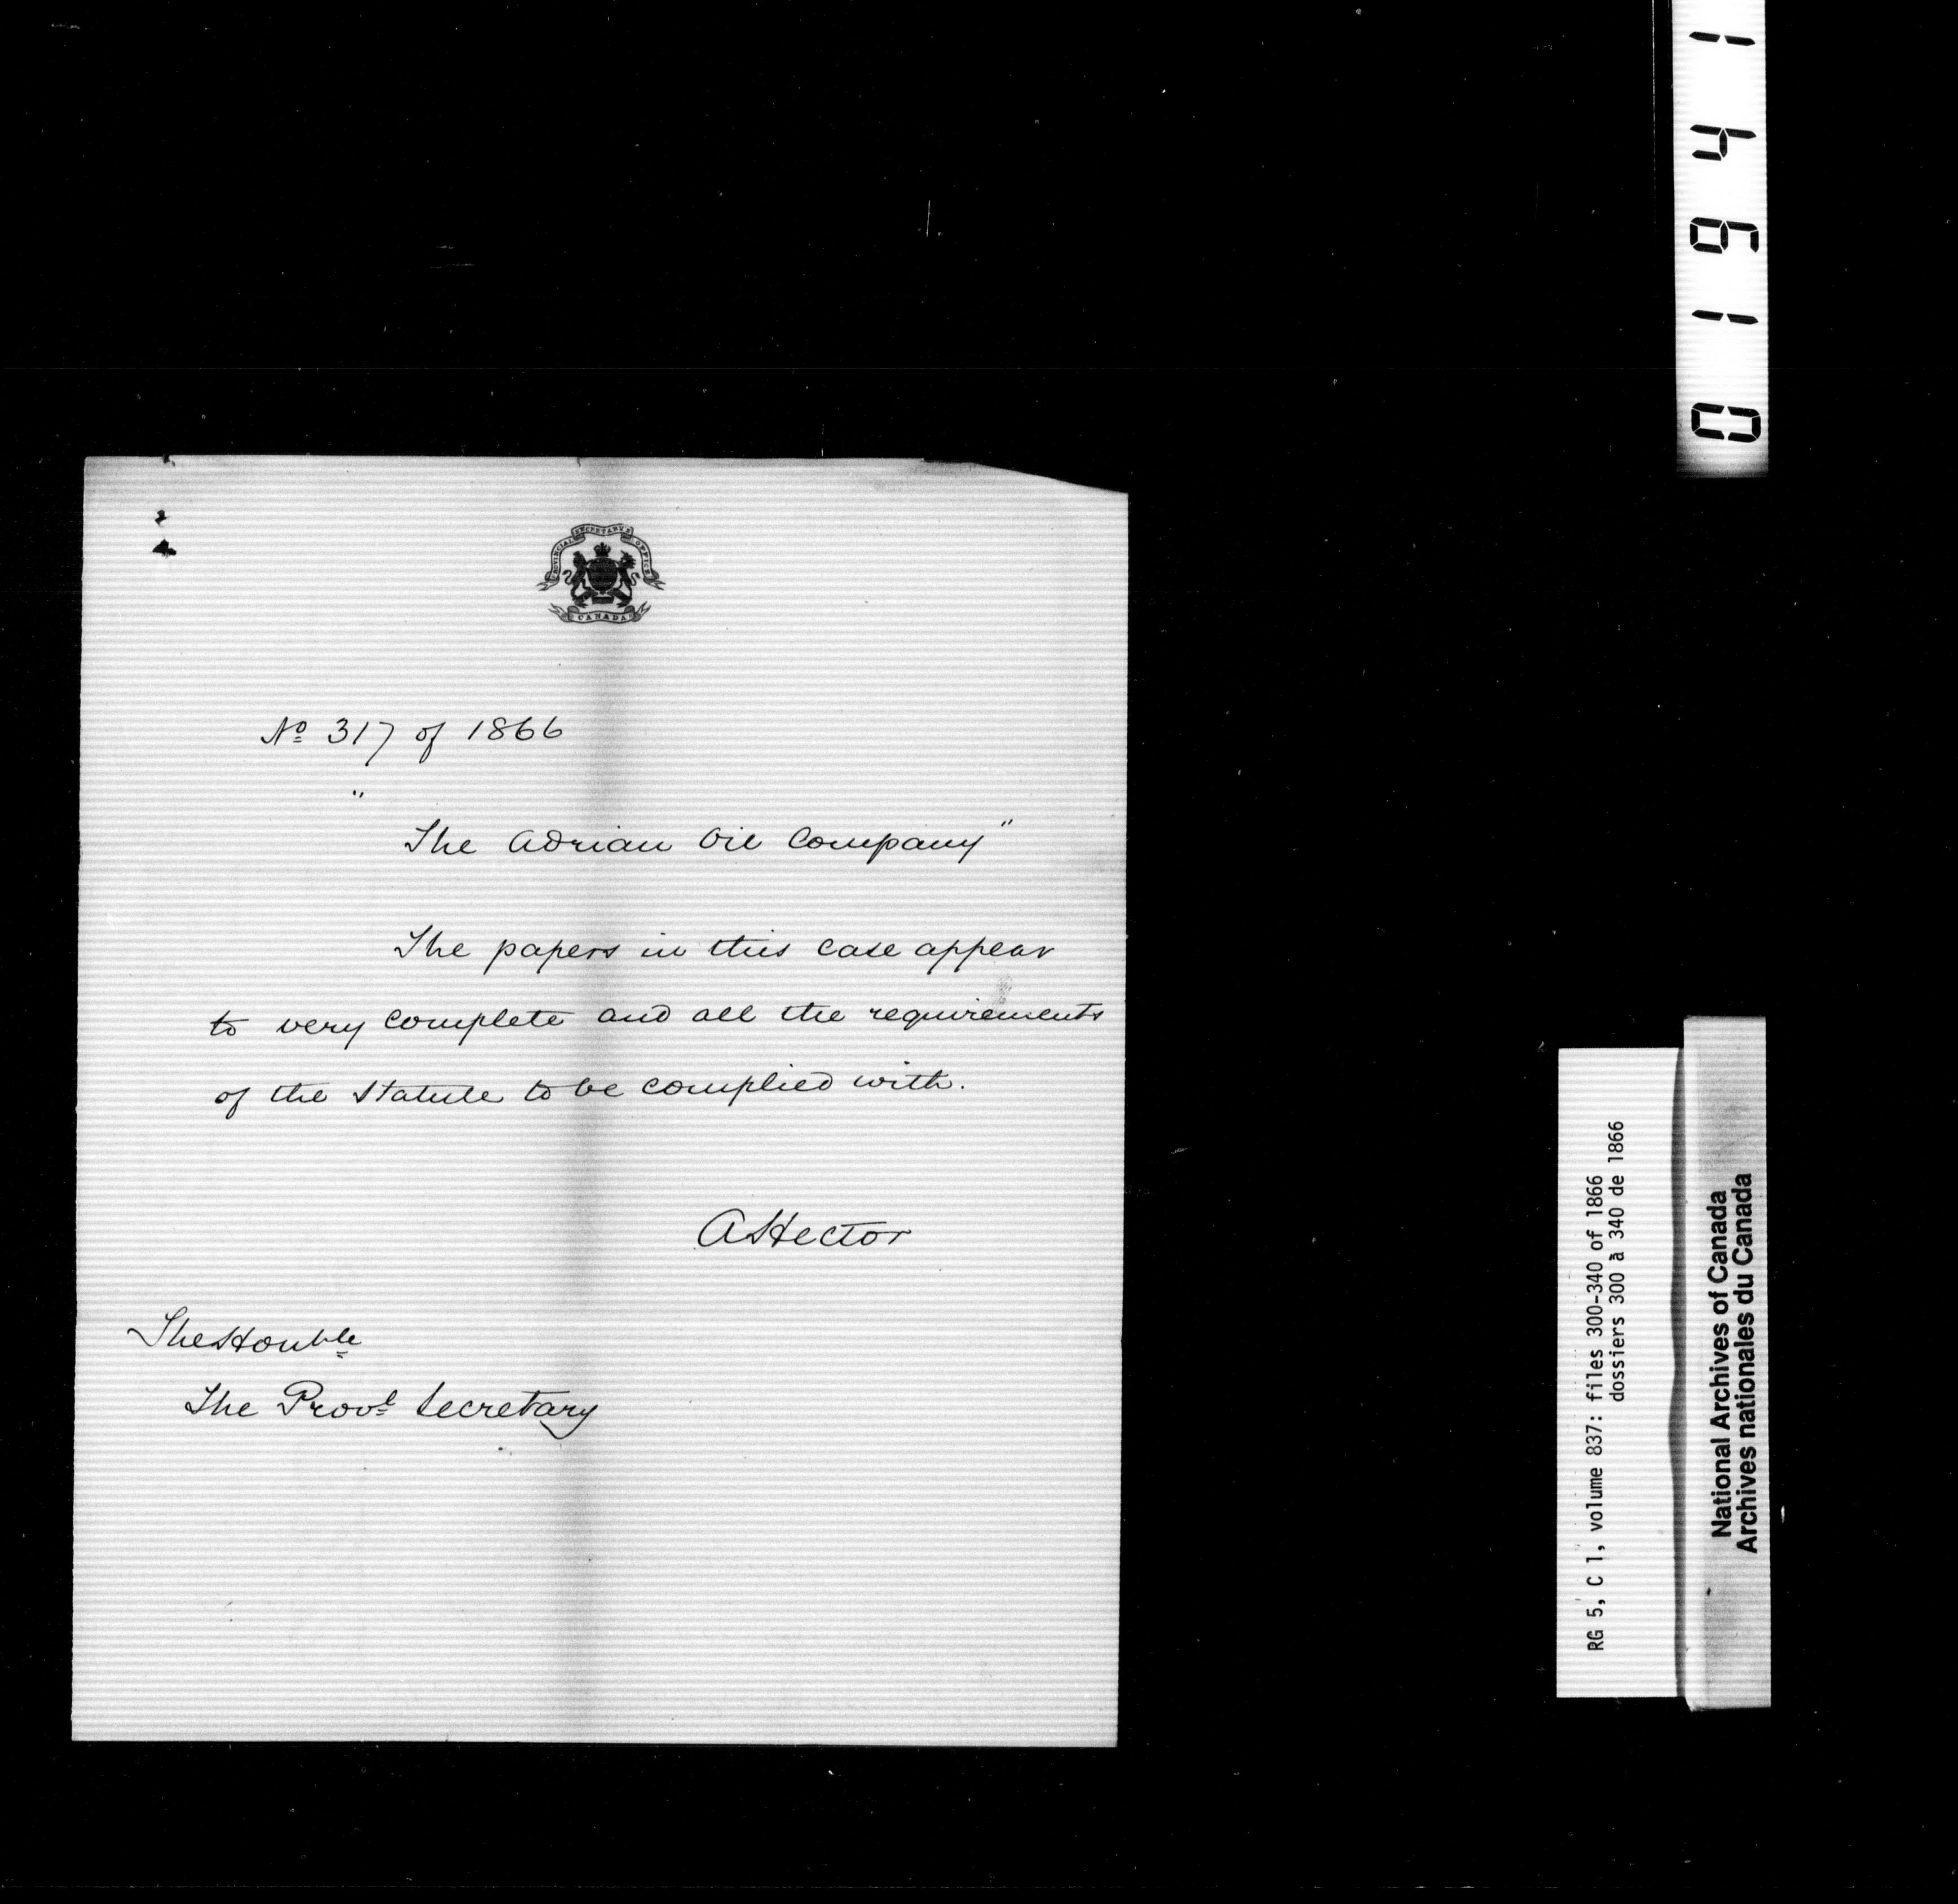 PROVINCIAL SECRETARY'S OFFICE
CANADA
No 317 of 1866
"
The Adrian Oil Company"
The papers in this case appear
to very complete and all the requirements
of the Statute to be complied with.
A Hector
The Honble
The Provl Secretary
01941
RG 5, C 1, volume 837: files 300-340 of 1866
dossiers 300 à 340 de 1866
National Archives of Canada
Archives nationales du Canada